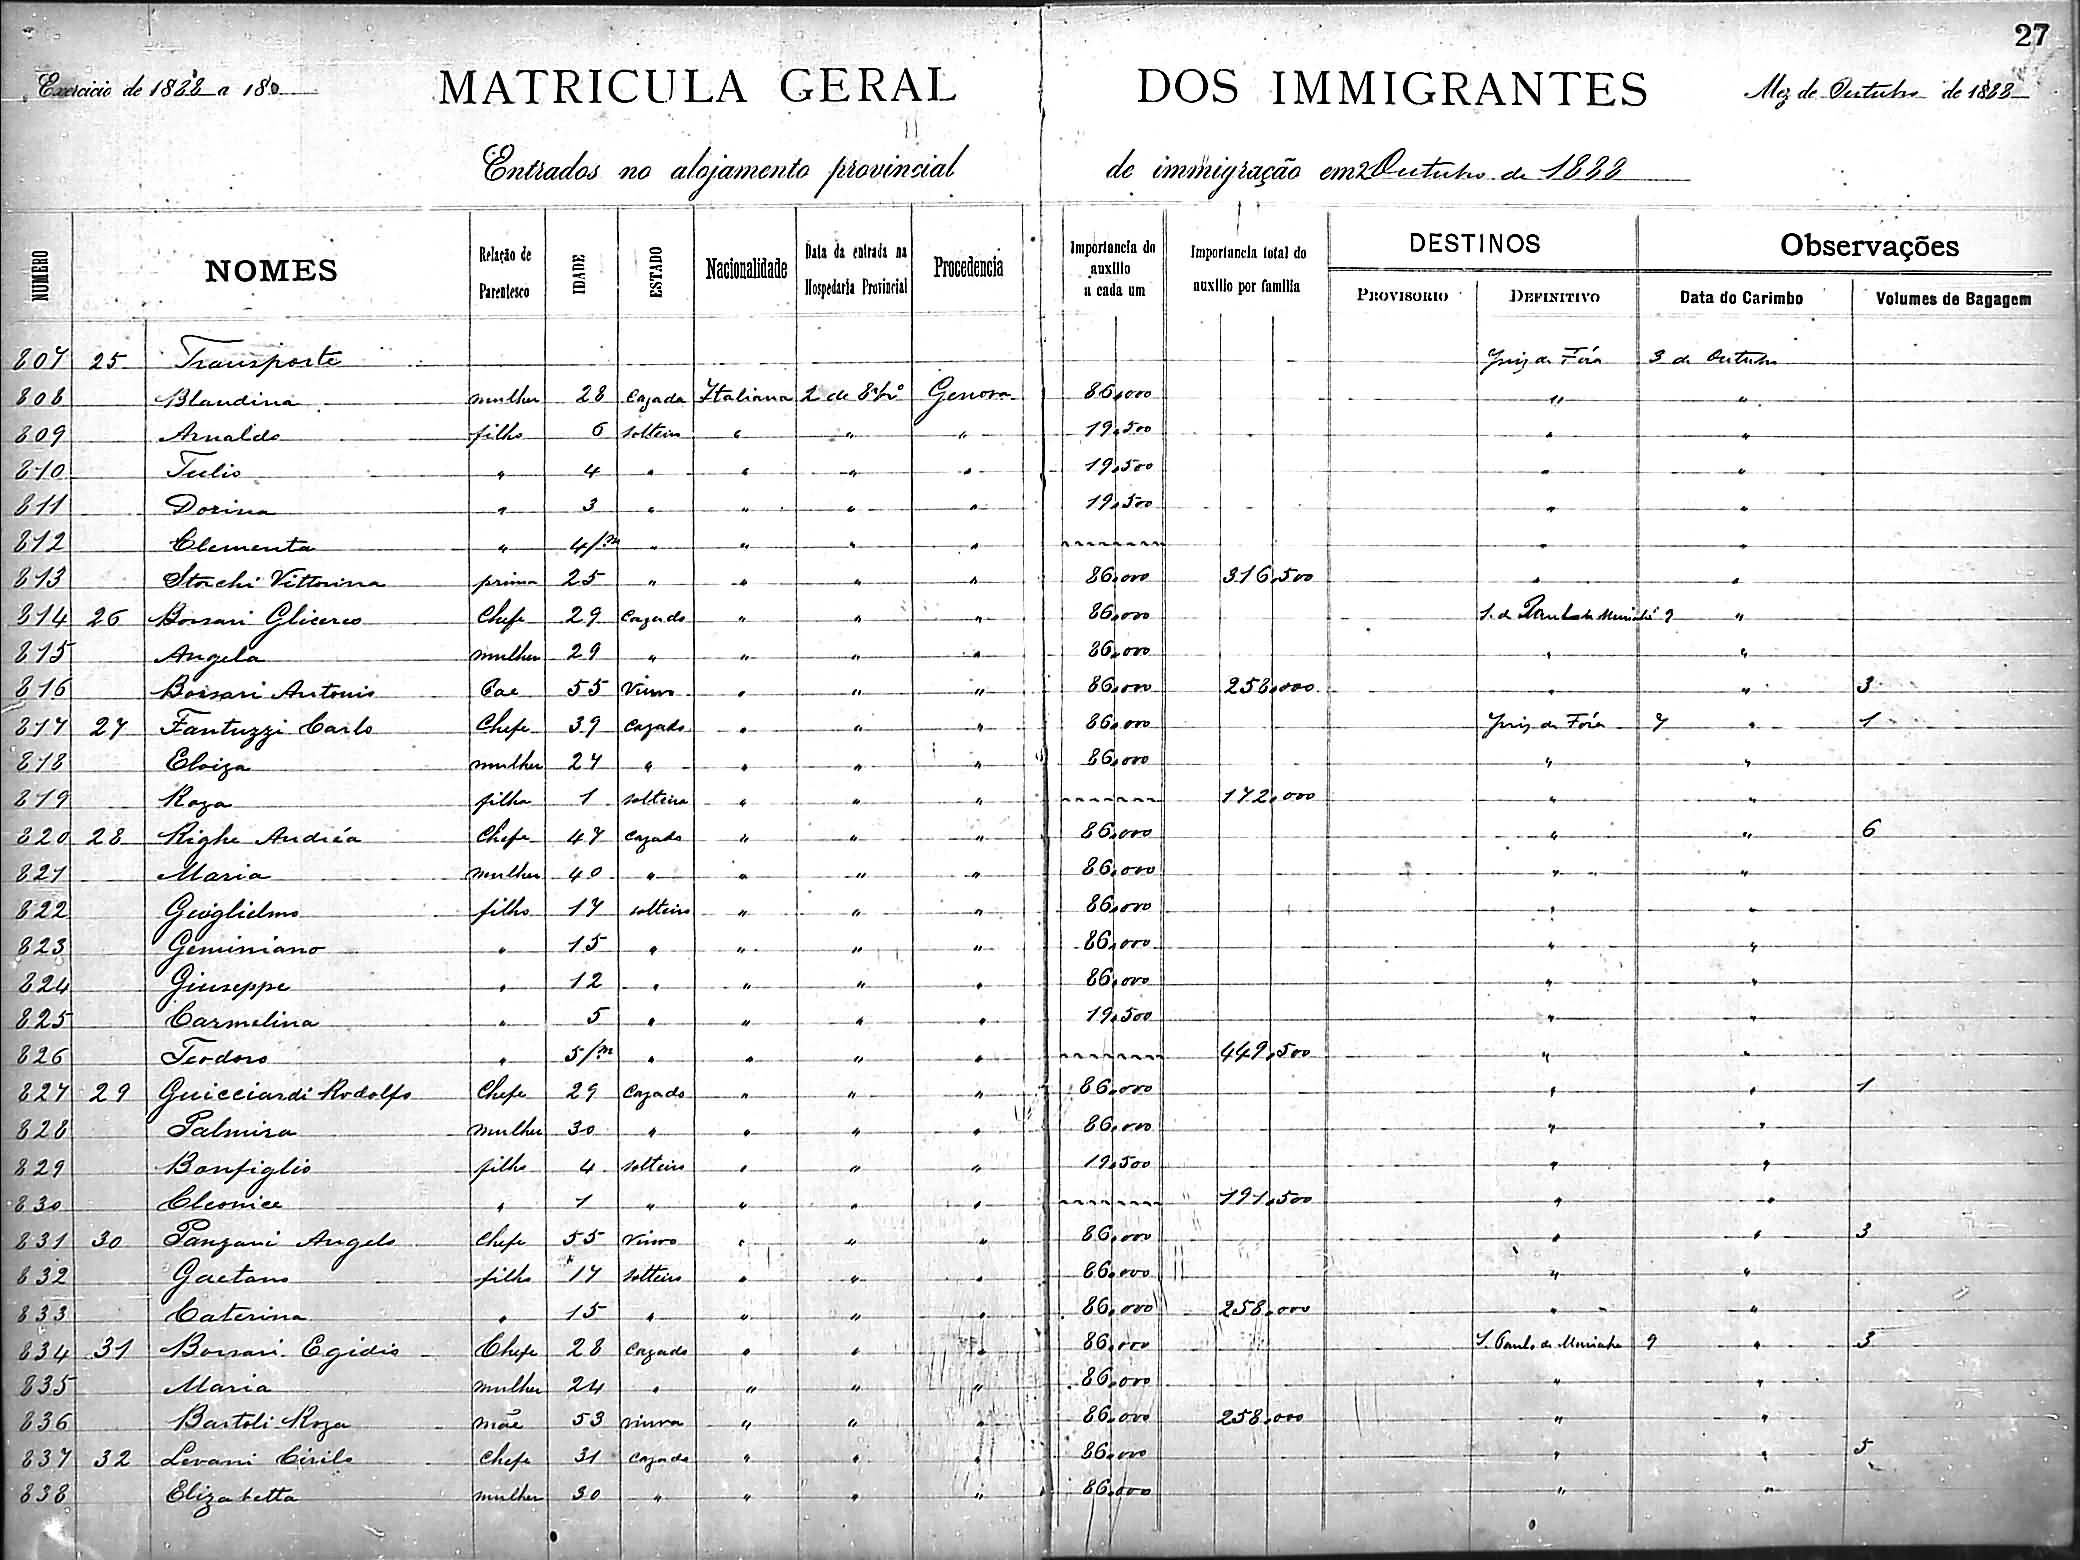 27
Exercicio de 1888 a 18
MATRICULA GERAL DOS IMMIGRANTES
Mez de Outubro de 1888
Entrados no alojamento provincial de immigração em 2 Outubro de 1888
NUMERO NOMES Relação de Parentesco IDADE ESTADO Nacionalidade Data da entrada na Hospedaria Provincial Procedencia Importancia do auxilio a cada um Importancia total do auxilio por familia DESTINOS PROVISORIO DEFINITIVO Observações Data do Carimbo Volumes de Bagagem
807 25 Transporte Juiz de Fóra 3 de Outubro
808 Blandina mulher 28 Cazada Italiana 2 de 8bro Genova 86,000 " "
809 Arnaldo filho 6 solteiro " " " 19,500 " "
810 Tulio " 4 " " " " 19,500 " "
811 Dorina " 3 " " " " 19,500 " "
812 Clementa " 4/m " " " " " "
813 Storchi Vittorina prima 25 " " " " 86,000 316,500 " "
814 26 Borsari Glicereo Chefe 29 Cazado " " " 86,000 S. de Paulo de Muriahé 9 "
815 Angela mulher 29 " " " " 86,000 " "
816 Borsari Antonio Pae 55 Viuvo " " " 86,000 258,000 " " 3
817 27 Fantuzzi Carlo Chefe 39 Cazado " " " 86,000 Juiz de Fóra 7 " 1
818 Eloiza mulher 27 " " " " 86,000 " "
819 Roza filha 1 solteira " " " 172,000 " "
820 28 Righe Andréa Chefe 47 Cazado " " " 86,000 " " 6
821 Maria mulher 40 " " " " 86,000 " "
822 Guiglielmo filho 17 solteiro " " " 86,000 " "
823 Geminiano " 15 " " " " 86,000 " "
824 Giuseppe " 12 " " " " 86,000 " "
825 Carmelina " 5 " " " " 19,500 " "
826 Teodoro " 5/m " " " " 449,500 " "
827 29 Guicciardi Rodolfo Chefe 29 Cazado " " " 86,000 " " 1
828 Palmira mulher 30 " " " " 86,000 " "
829 Bonfiglio filho 4 solteiro " " " 19,500 " "
830 Cleonice " 1 " " " " 191,500 " "
831 30 Panzani Angelo Chefe 55 Viuvo " " " 86,000 " " 3
832 Gaetano filho 17 solteiro " " " 86,000 " "
833 Caterina " 15 " " " " 86,000 258,000 " "
834 31 Borsari Egidio Chefe 28 Cazado " " " 86,000 S. Paulo de Muriahe 9 " 3
835 Maria mulher 24 " " " " 86,000 " "
836 Bartoli Roza mãe 53 viuva " " " 86,000 258,000 " "
837 32 Levani Cirilo Chefe 31 Cazado " " " 86,000 " " 5
838 Elizabetta mulher 30 " " " " 86,000 " "